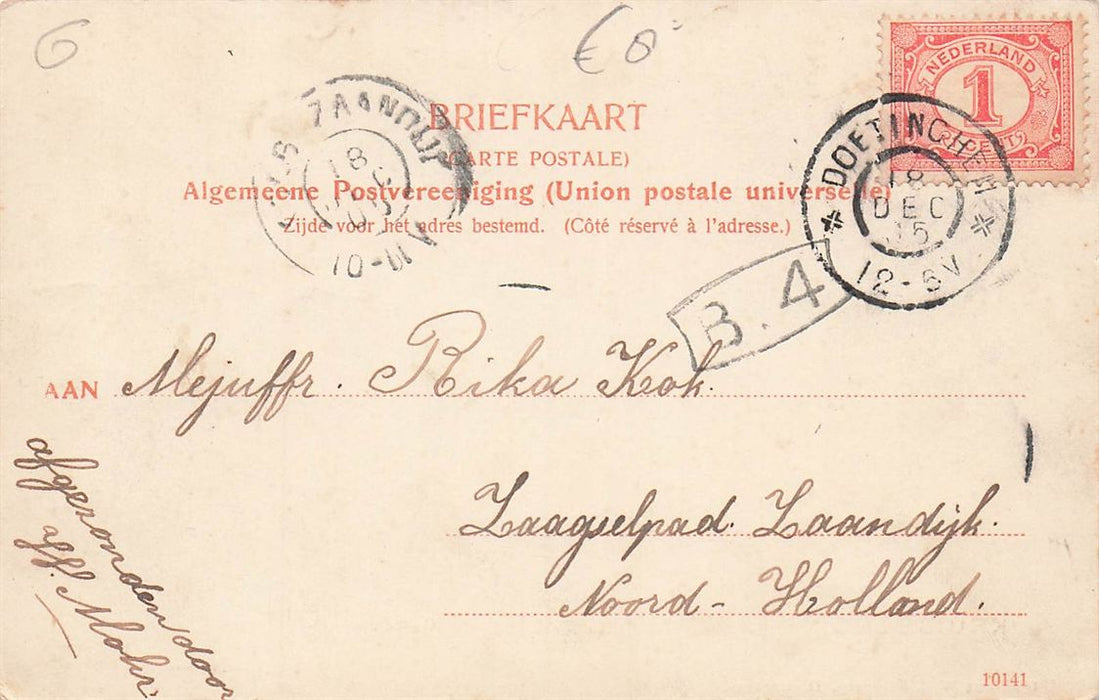 6
€ 0
NEDERLAND
1
CENT
DOETINCHEM
18
DEC
12-6V
ZAANDIJK
18
10-11V
BRIEFKAART
(CARTE POSTALE)
Algemeene Postvereeniging (Union postale universelle)
Zijde voor het adres bestemd. (Côté réservé à l'adresse.)
B.4
AAN Mejuffr. Rika Kok.
Zaagselpad. Zaandijk.
Noord-Holland.
afgezonden door
Jff. Mohr.
10141